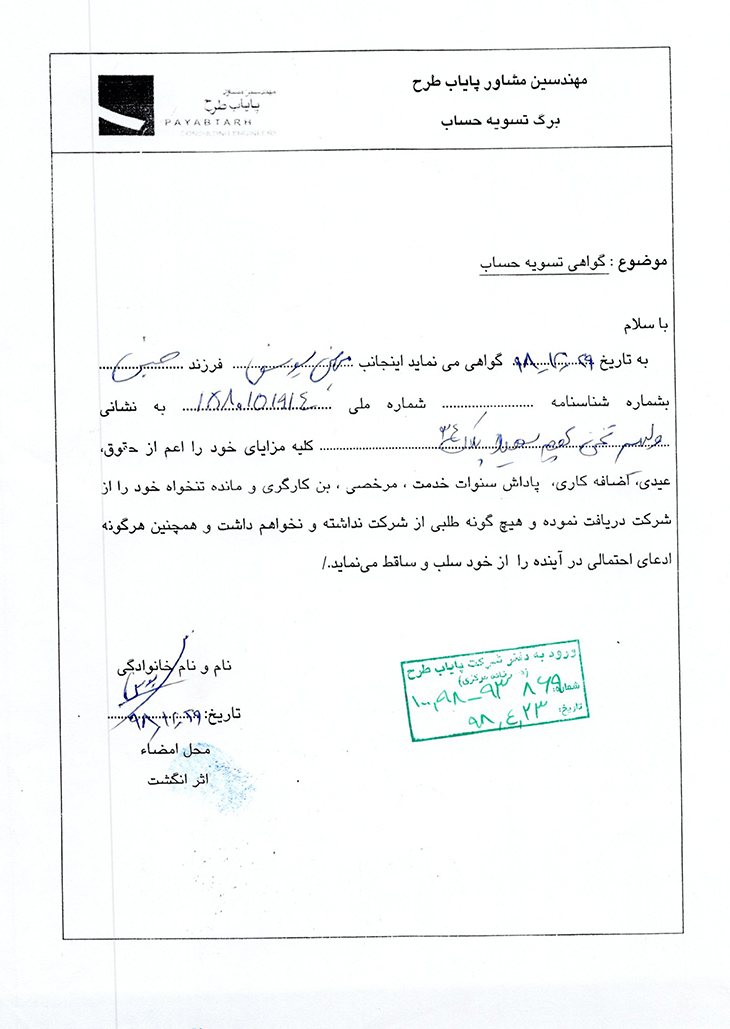 مهندسین مشاور پایاب طرح
برگ تسویه حساب
مهندسین مشاور
پایاب طرح
PAYABTARH
CONSULTING ENGINEERS
موضوع : گواهی تسویه حساب
با سلام
به تاریخ ۹۸,۱۲,۲۹ گواهی می نماید اینجانب فرزند
بشماره شناسنامه شماره ملی به نشانی
پلاک ۳۴ کلیه مزایای خود را اعم از حقوق،
عیدی، اضافه کاری، پاداش سنوات خدمت ، مرخصی ، بن کارگری و مانده تنخواه خود را از
شرکت دریافت نموده و هیچ گونه طلبی از شرکت نداشته و نخواهم داشت و همچنین هرگونه
ادعای احتمالی در آینده را از خود سلب و ساقط می‌نماید./
نام و نام خانوادگی
تاریخ: ۹۸,۱۲,۲۹
محل امضاء
اثر انگشت
ورود به دفتر شرکت پایاب طرح
شماره:
تاریخ: ۹۸,۴,۲۳